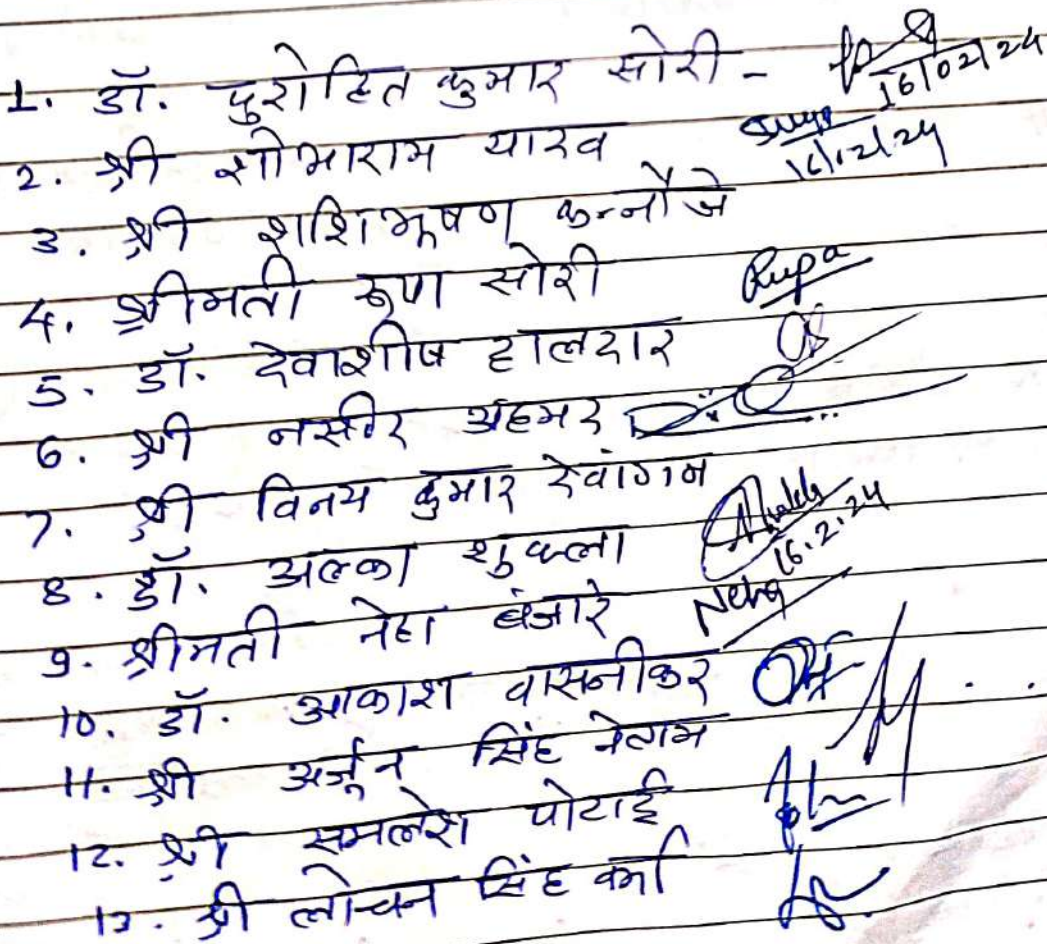 1. डॉ. पुरोहित कुमार सोरी - 16/02/24
2. श्री शोभाराम यादव 16/02/24
3. श्री शशिभूषण कन्नौजे
4. श्रीमती रूपा सोरी Rupa
5. डॉ. देवाशीष हालदार
6. श्री नसीर अहमद
7. श्री विनय कुमार देवांगन
8. डॉ. अल्का शुक्ला 16.2.24
9. श्रीमती नेहा बंजारे Neha
10. डॉ. आकाश वासनीकर
11. श्री अर्जून सिंह नेताम
12. श्री समलेश पोटाई
13. श्री लोचन सिंह वर्मा